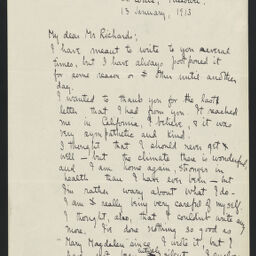 St. Louis, Missouri.
13 January, 1913
My dear Mr Richards;
I have meant to write to you several
times, but I have always postponed it
for some reason or other until another
day.
I wanted to thank you for the last
letter that I had from you. It reached
me in California, I believe, & it was
very sympathetic and kind.
I thought that I should never get
well – but the climate there is wonderful
and I am home again, stronger in
health than I have ever been – but
I'm rather wary about what I do –
I am really being very careful of myself.
I thought, also, that I couldn't write any
more. I've done nothing so good as
Mary Magdalen since I wrote it, but I